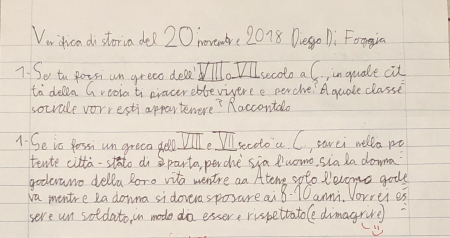 Verifica di storia del 20 novembre 2018 Diego Di Foggia
1- Se tu fossi un greco dell'VIII o VII secolo a C, in quale cit
tà della Grecia ti piacerebbe vivere e perché? A quale classe
sociale vorresti appartenere? Raccontalo
1- Se io fossi un greco dell VIII e VII secolo a C, sarei nella po
tente città-stato di Sparta, perché sia l'uomo, sia la donna
godevano della loro vita mentre aa Atene solo l'uomo gode
va mentre la donna si doveva sposare ai 8-10 anni. Vorrei es
sere un soldato, in modo da essere rispettato (e dimagrire)